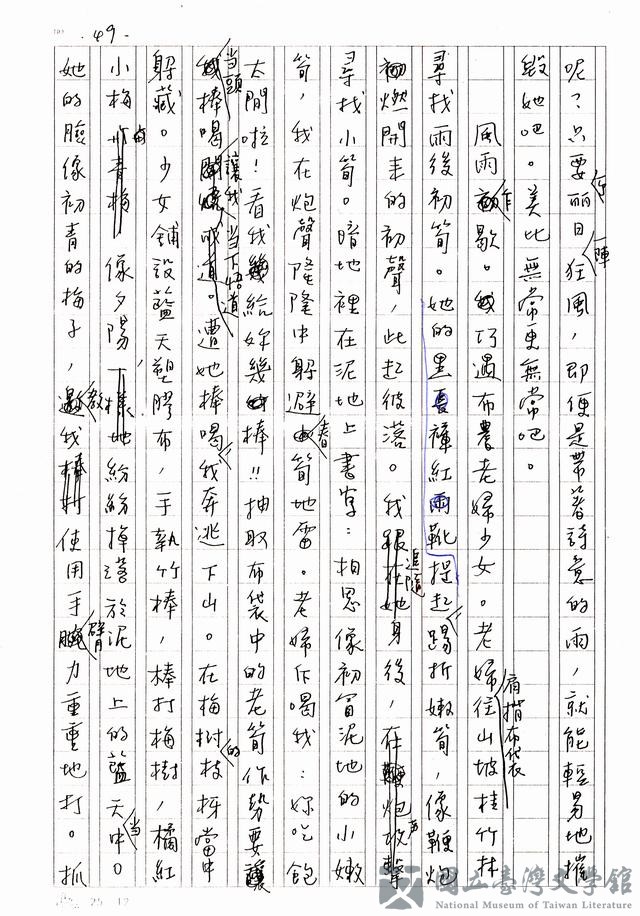 -49-
呢？只要丽日狂風，即便是帶著詩意的雨，就能輕易地摧
乍
一陣
毀她吧。美比無常更無常吧。
風雨乍歇。我巧遇布農老婦少女。老婦往山坡桂竹林
肩揹布袋
尋找雨後初筍。她的黑長褲紅雨靴提起踢折嫩筍，像鞭炮
初燃開來的初聲，此起彼落。我追隨她身後，在炮聲
尋找小筍。暗地裡在泥地上書字：相思像初冒泥地的小嫩
筍，我在炮聲隆隆中躲避春筍地雷。老婦斥喝我：妳吃飽
太閒啦！看我給妳幾棒！！抽取布袋中的老筍作勢要讓
我當頭棒喝讓我當下悟道。遭她棒喝我奔逃下山。在梅樹枝枒當中
的
躲藏。少女鋪設藍天塑膠布，手執竹棒，棒打梅樹，橘紅
小梅由青梅像夕陽，紛紛掉落於泥地上的藍天中。
當
她的臉像初青的梅子，教我使用手臂力重重地打。抓
國立臺灣文學館
National Museum of Taiwan Literature